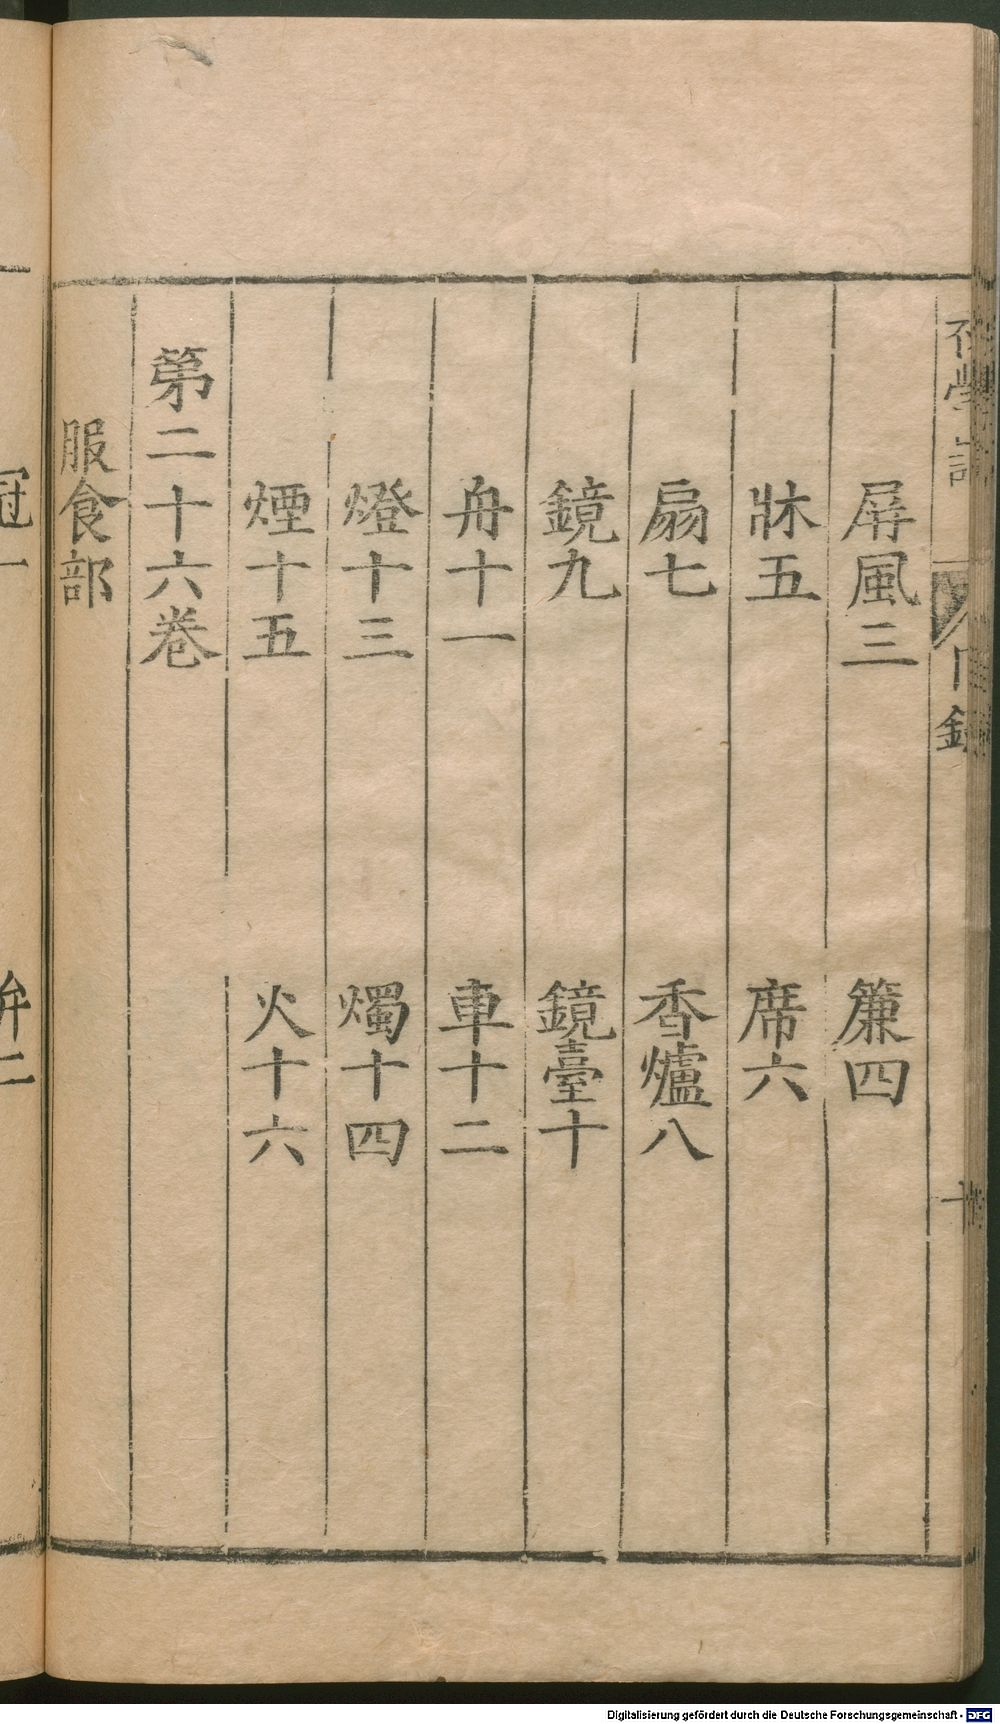 屏風三　簾四
牀五　席六
扇七　香爐八
鏡九　鏡臺十
舟十一　車十二
燈十三　燭十四
煙十五　火十六
第二十六卷
服食部
冠一　弁二
Digitalisierung gefördert durch die Deutsche Forschungsgemeinschaft - DFG